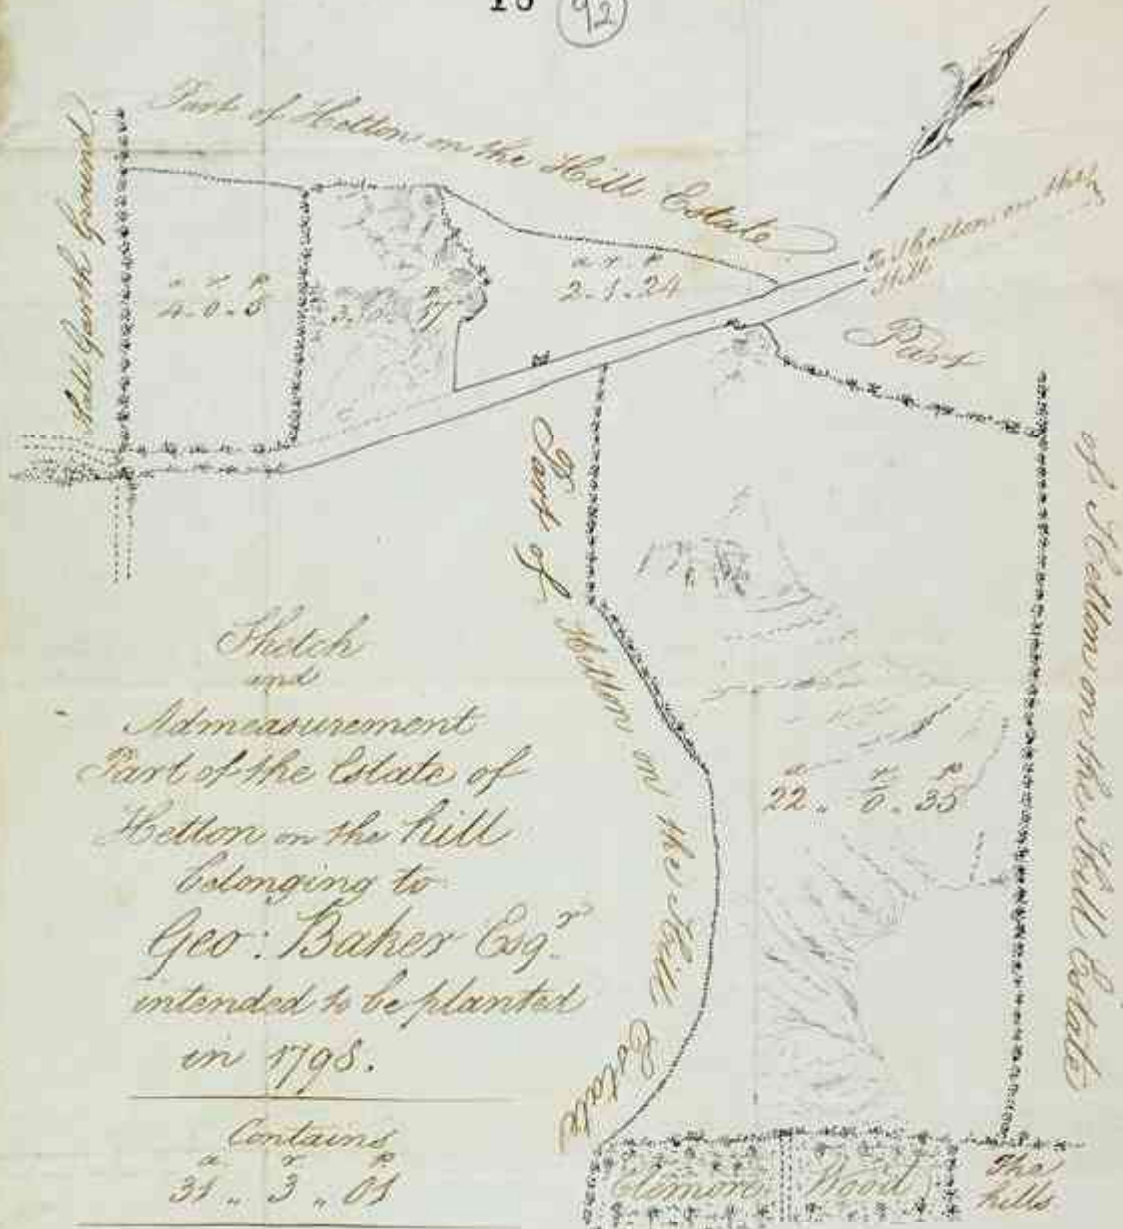 92
Part of Hetton on the Hill Estate
Hall Garth Ground
a r p
4 - 0 - 5
3
p
17
a r p
2 - 1 - 24
To Hetton on the
Hill
Part
of Hetton on the Hill Estate
Part of Hetton on the Hill Estate
a r p
22 " 0 - 35
Sketch
and
Admeasurement
Part of the Estate of
Hetton on the hill
belonging to
Geo: Baker Esqr
intended to be planted
in 1798.
Contains
a r p
31 " 3 " 01
Elemore Wood
The
hills